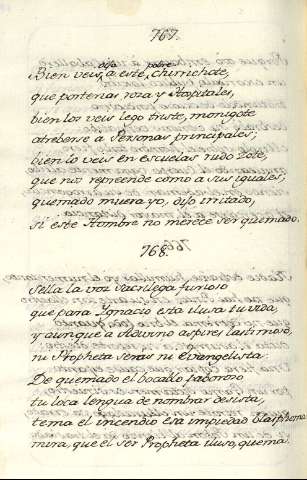 767.
Bien veis, dijo, a este pobre chimichote,
que porterias roza y Hospitales,
bien los veis lego triste, monigote
atreberse a Personas principales;
bien lo veis en escuelas rudo zote,
que nos repreende como a sus iguales;
quemado muera yo, dijo irritado,
si este Hombre no merece ser quemado.
768.
Sella la voz Sacrilega furioso
que para Ygnacio esta ilusa tu vida,
y aunque a Adivino aspires lastimoso,
ni Propheta seras ni Evangelista.
De quemado el bocablo
tu loca lengua de nombrar desista,
tema el incendio esa impiedad blasphema
mira, que el ser Propheta iluso, quema.